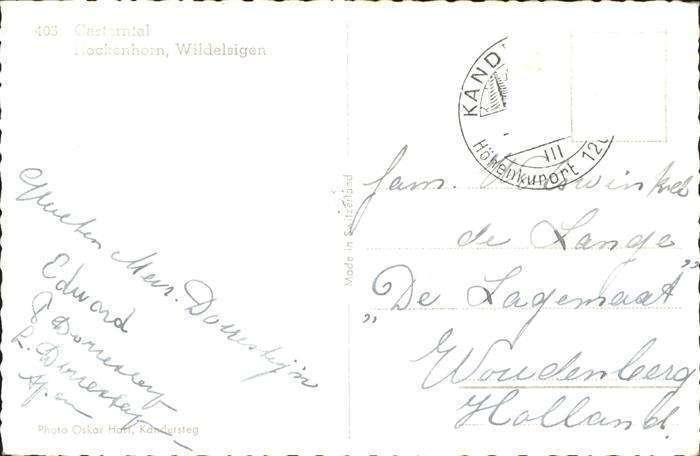 403 Gasterntal
Hockenhorn, Wildelsigen
KAND
III
Höhenkurort 120
Made in Switzerland
Fam.
de Lange
„De Lagemaat”
Woudenberg
Holland.
Groeten Mevr. Dorresteijn
Edward
E Dorresteijn
L. Dorresteijn
Photo Oskar Hari, Kandersteg